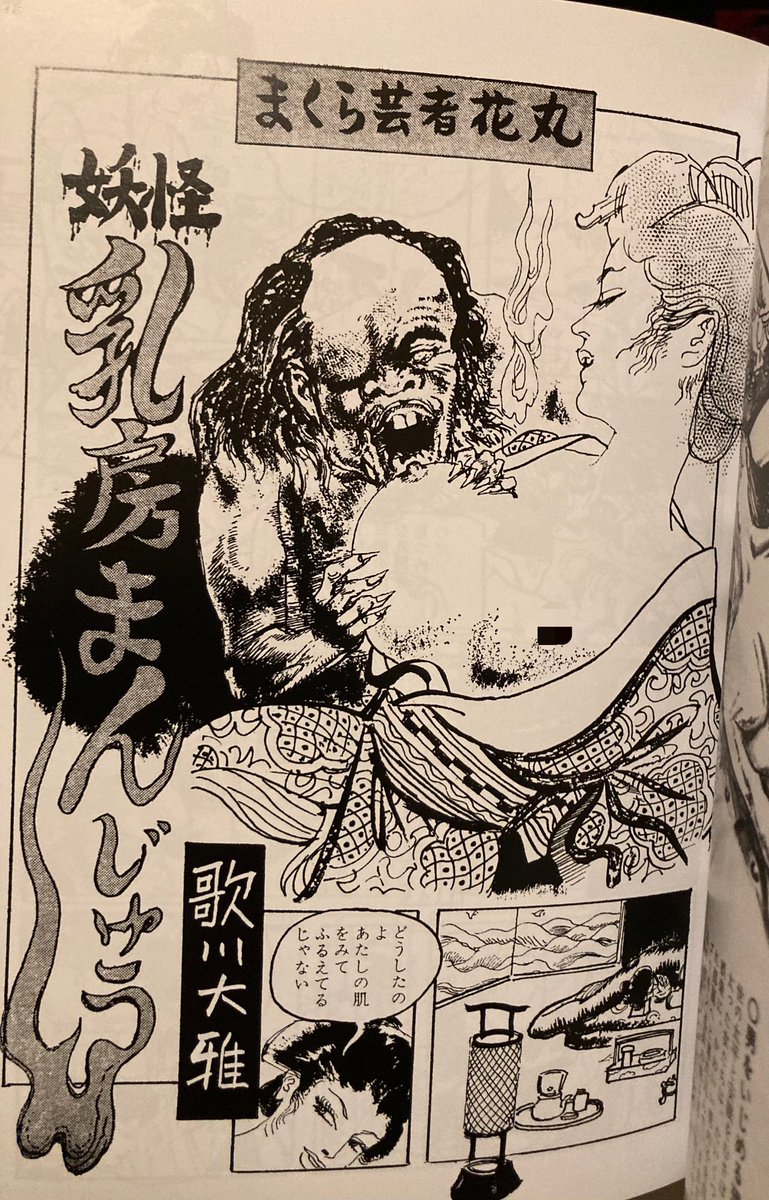 まくら芸者花丸
妖怪
乳房まんじゅう
歌川大雅
どうしたの
よ
あたしの肌
をみて
ふるえてる
じゃない